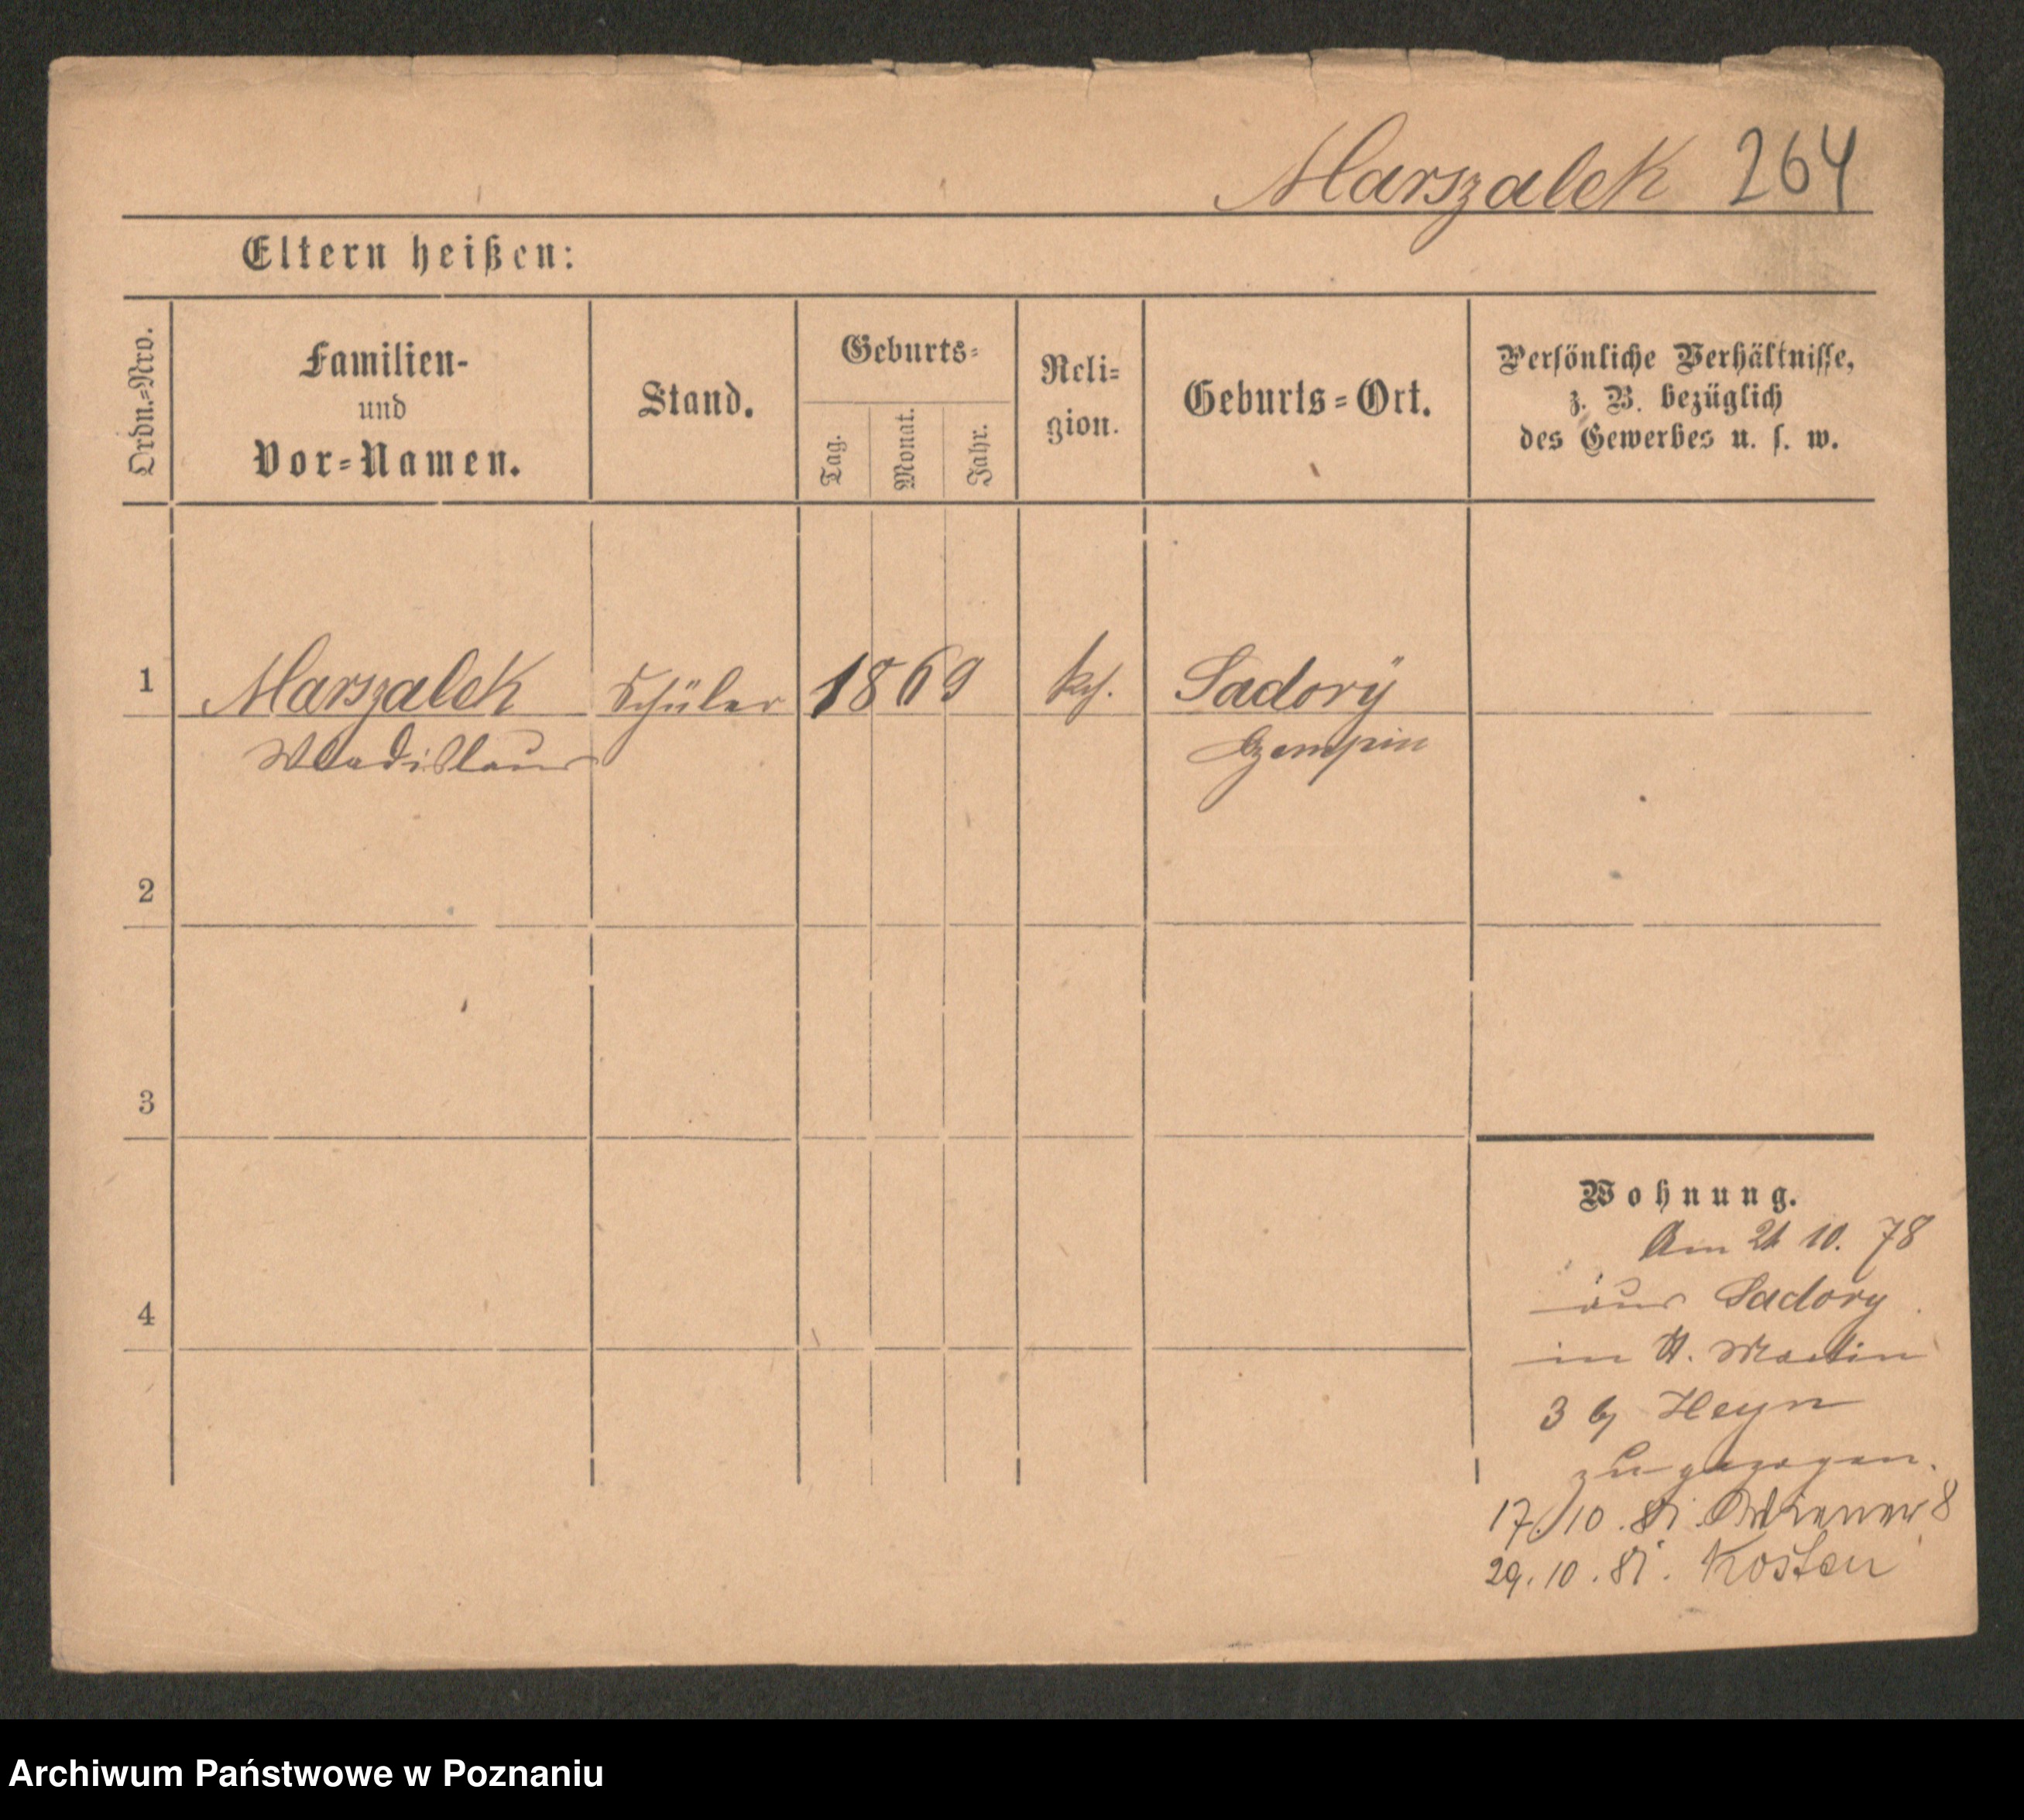 Marszalek 264
Eltern heißen:
Ordn.=Nro.
Familien-
und
Vor=Namen.
Stand.
Geburts=
Tag.
Monat.
Jahr.
Reli=
gion.
Geburts=Ort.
Persönliche Verhältnisse,
z. B. bezüglich
des Gewerbes u. s. w.
1 Marszalek Schüler 1869 Sadory
Wladislaus Czempin
2
3
4
Wohnung.
Am 21 10. 78
aus Sadory
in St. Martin
3 by Heyn
zugezogen.
17./10. 81. 8
29.10.81. Kosten
Archiwum Państwowe w Poznaniu